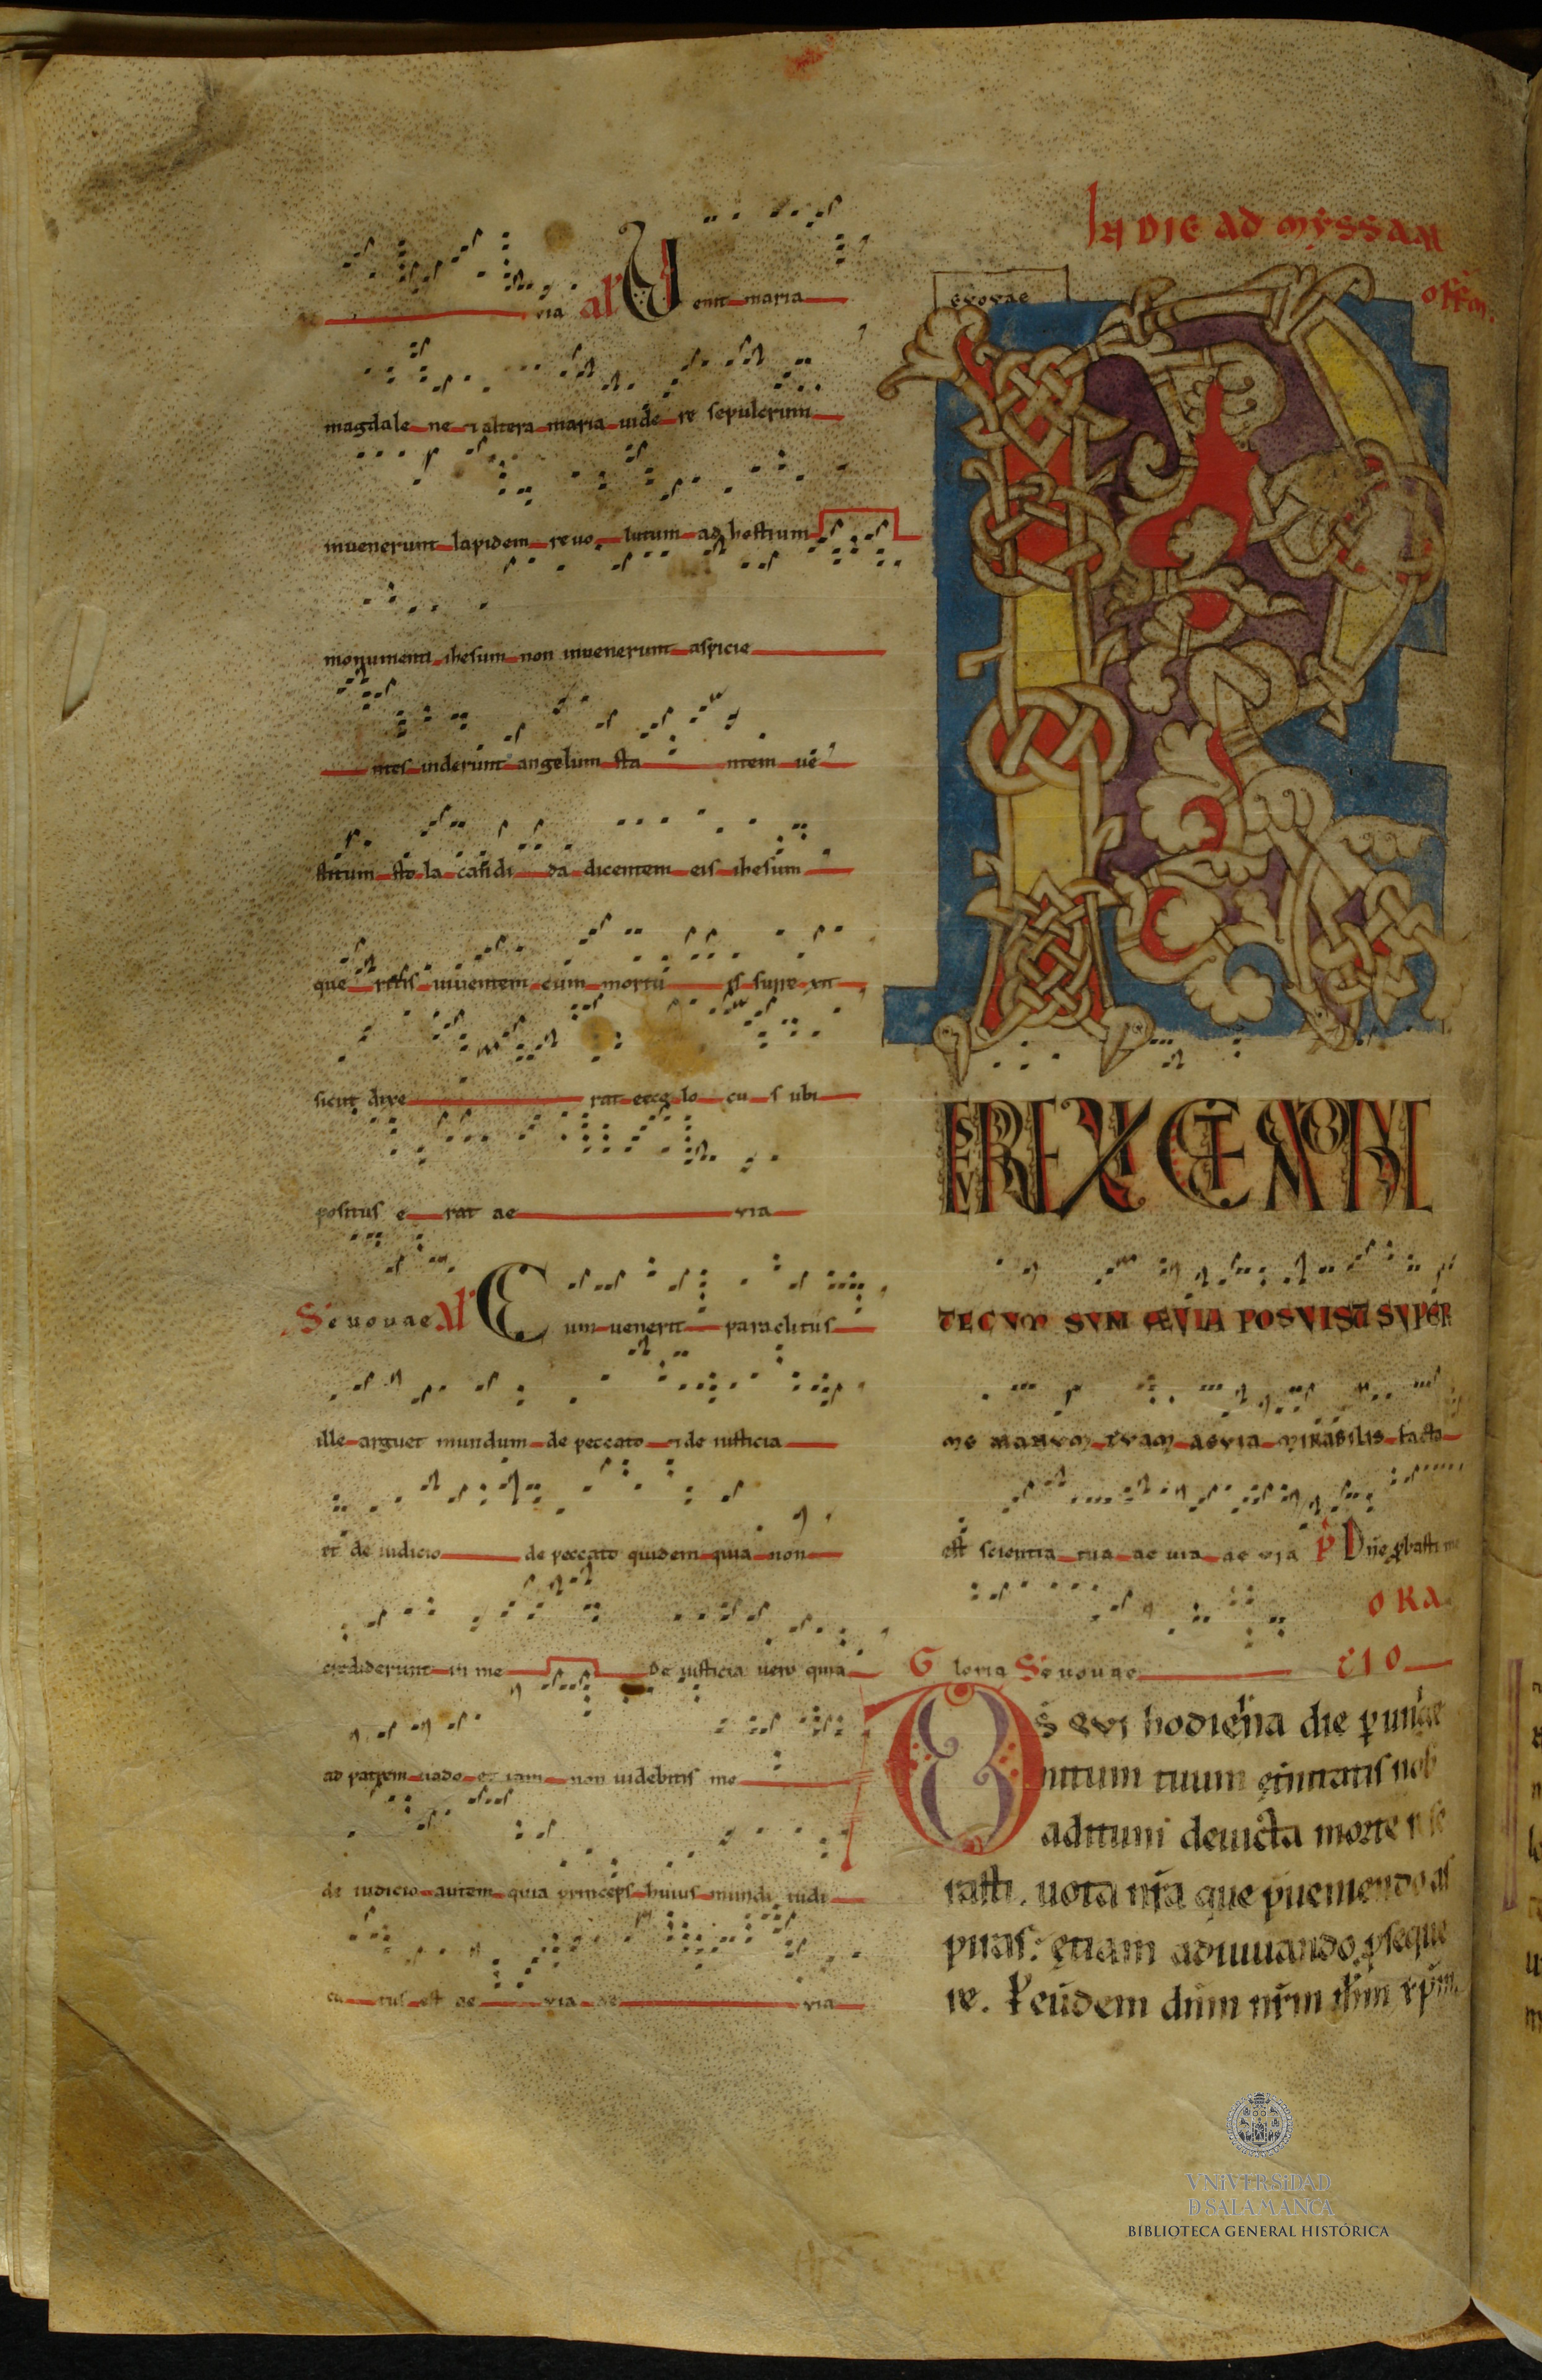 via alƚ Venit maria
magdalene ⁊ altera maria uidere sepulcrum
inuenerunt lapidem reuolutum ad hostium
monumenti ihesum non inuenerunt aspicie
ntes uiderunt angelum stantem ue
stitum stola candida dicentem eis ihesum
queritis uiuentem cum mortuis surrexit
sicut dixerat ecce locus ubi
positus erat ae via
Seuouae alƚ Cum uenerit paraclitus
ille arguet mundum de peccato ⁊ de iusticia
et de iudicio de peccato quidem quia non
crediderunt in me de iusticia uero quia
ad patrem uado et iam non uidebitis me
de iudicio autem quia princeps huius mundi iudi
catus est ae via ae via
IN DIE AD MYSSAM
offm.
evovae
RESURREXI ET ADHUC
TECVM SVM ÆVIA POSVISTI SVPER
ME MANVM TVAM AEVIA MIRABILIS facta
est scientia tua ae uia ae via P Dñe ꝓbasti me
Gloria Seuouae
ORA
CIO
DS QVI hodierna die ꝑ unige
nitum tuum eternitatis nob
aditum deuicta morte rese
rasti. uota nr̃a que preueniendo as
piras: etiam adiuuando ꝓseque
re. Ꝑ eũdem dñm nr̃m ih̃m xp̃m.
VNiVERSiDAD
Ð SALAMANCA
BIBLIOTECA GENERAL HISTÓRICA